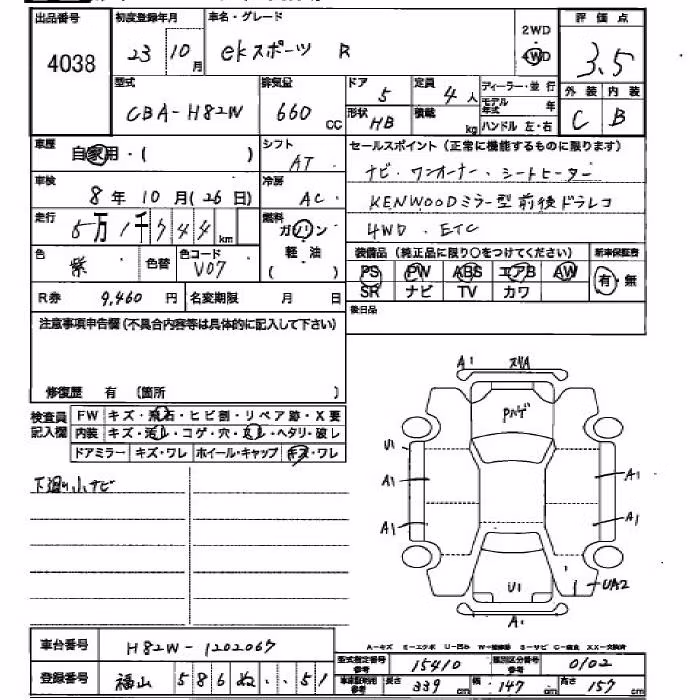 出品番号 初度登録年月 車名・グレード 評価点
4038 23年10月 ekスポーツ R 2WD 4WD 3.5
型式 排気量 ドア 定員 ディーラー・並行 外装 内装
CBA-H82W 660 cc 5 4人 モデル年式 年 C B
形状 HB 積載 kg ハンドル 左・右
車歴 自家用・( ) シフト AT セールスポイント(正常に機能するものに限ります)
ナビ・ワンオーナー・シートヒーター
車検 8年10月(26日) 冷房 AC KENWOODミラー型前後ドラレコ
走行 5万1千744km 燃料 ガソリン 軽油 ( ) 4WD.ETC
色 紫 色替 色コード V07 装備品(純正品に限り○をつけてください) 新車保証書
PS PW ABS エアB AW 有・無
R券 9,460円 名変期限 月 日 SR ナビ TV カワ
注意事項申告欄(不具合内容等は具体的に記入して下さい) 後日品
修復歴 有 (箇所 )
検査員記入欄 FW キズ・飛石・ヒビ割・リペア跡・X要
内装 キズ・汚れ・コゲ・穴・スレ・ヘタリ・破レ
ドアミラー キズ・ワレ ホイール・キャップ キズ・ワレ
下廻り小サビ
A1
Pハゲ
U1
A1 A1
A1 A1
U1 UA2
A1
A-キズ E-エクボ U-凹み W-補修跡 S-サビ C-腐食 XX-交換済
車台番号 H82W-1202067
型式指定番号 参考 15410 類別区分番号 参考 0102
登録番号 福山 586 ぬ ・・51
車庫証明用 参考 長さ 339cm 幅 147cm 高さ 157cm